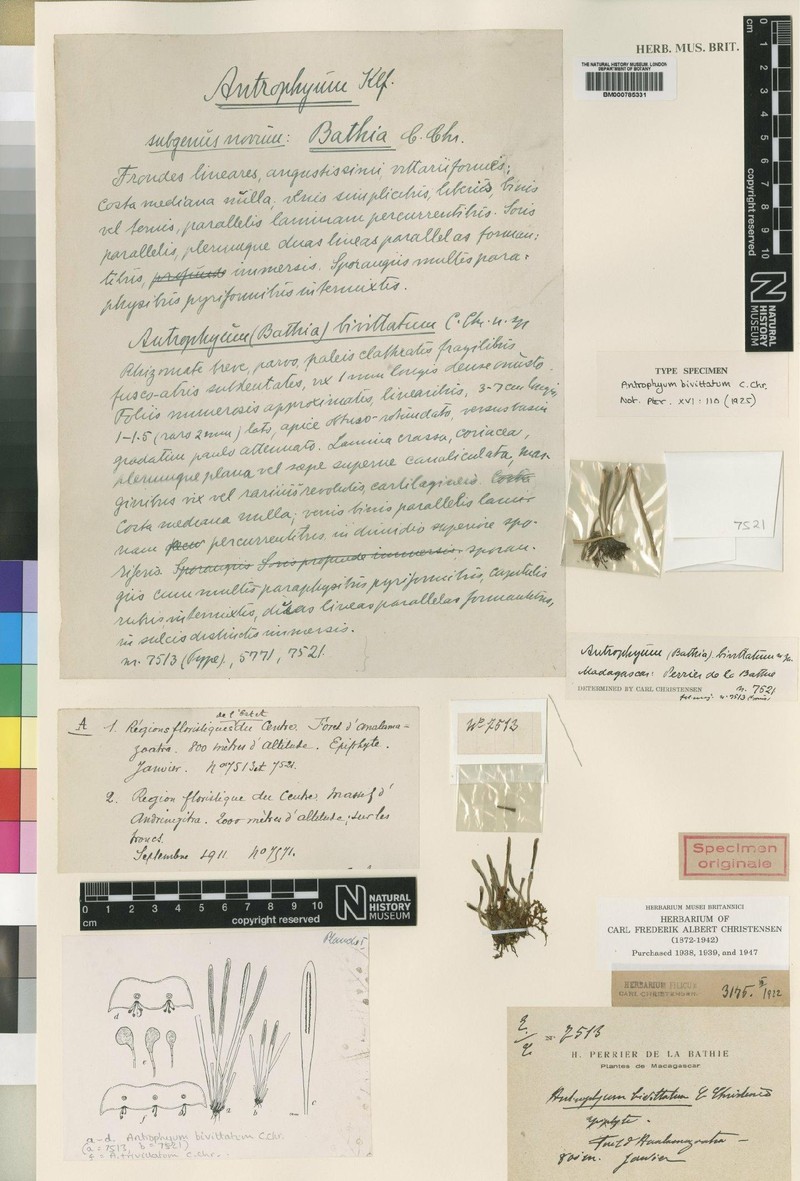 HERB. MUS. BRIT.
THE NATURAL HISTORY MUSEUM, LONDON
DEPARTMENT OF BOTANY
BM000785331
Antrophyum Klf.
subgenus novum: Bathia C. Chr.
Frondes lineares, angustissimi, vittariiformes;
costa mediana nulla; venis simplicibus, liberis, binis
vel ternis, parallelis laminam percurrentibus. Soris
parallelis, plerumque duas lineas parallelas forman:
tibus, immersis. Sporangiis multis para-
physibus pyriformibus intermixtis.
Antrophyum (Bathia) bivittatum C. Chr. n. sp
Rhizomate breve, parvo, paleis clathratis fragilibus
fusco-atris subdentatis, vix 1 mm longis dense onusto.
Foliis numerosis approximatis, linearibus, 3-7 cm longis,
1-1.5 (raro 2mm) latis, apice obtuso-rotundato, versus basin
gradatim paulo attenuato. Lamina crassa, coriacea,
plerumque plana vel sæpe superne canaliculata, mar-
ginibus vix vel rarius revolutis, cartilagineis. Costa
Costa mediana nulla; venis binis parallelis lami-
nam percurrentibus, in dimidio superiore spo-
riferis. Sporangiis Soris profunde immersis. sporan-
giis cum multis paraphysibus pyriformibus, capitulis
rubris intermixtis, duas lineas parallelas formantibus,
in sulcis distinctis immersis.
nr. 7513 (Type), 5771, 7521.
TYPE SPECIMEN
Antrophyum bivittatum C.Chr.
Not. Pter. XVI: 110 (1925)
7521
Antrophyum (Bathia) bivittatum n. sp.
Madagascar: Perrier de la Bathie
n. 7521
DETERMINED BY CARL CHRISTENSEN
A
1. Régions floristiques de l'Est et du Centre. Foret d'analama-
zaotra. 800 mètres d'altitude. Epiphyte.
Janvier. No 7513 et 7521.
2. Region floristique du Centre. Massif d'
Andringitra. 2000 mètres d'altitude; sur les
troncs.
Septembre 1911.
No 7513
Specimen
originale
HERBARIUM MUSEI BRITANNICI
HERBARIUM OF
CARL FREDERIK ALBERT CHRISTENSEN
(1872-1942)
Purchased 1938, 1939, and 1947
HERBARIUM FILICUM
CARL CHRISTENSEN.
3175. 1912
n. 7513
H. PERRIER DE LA BATHIE
Plantes de Madagascar
Antrophyum bivittatum C Christensen
Epiphyte.
Foret d'Analamazaotra —
800 m. Janvier
0 1 2 3 4 5 6 7 8 9 10
cm
copyright reserved
NATURAL
HISTORY
MUSEUM
0 1 2 3 4 5 6 7 8 9 10
cm
copyright reserved
NATURAL
HISTORY
MUSEUM
d
e
b f b
a b c
a-d. Antrophyum bivittatum C.Chr.
(a = 7513, b = 7521)
= A. trivittatum C. Chr.